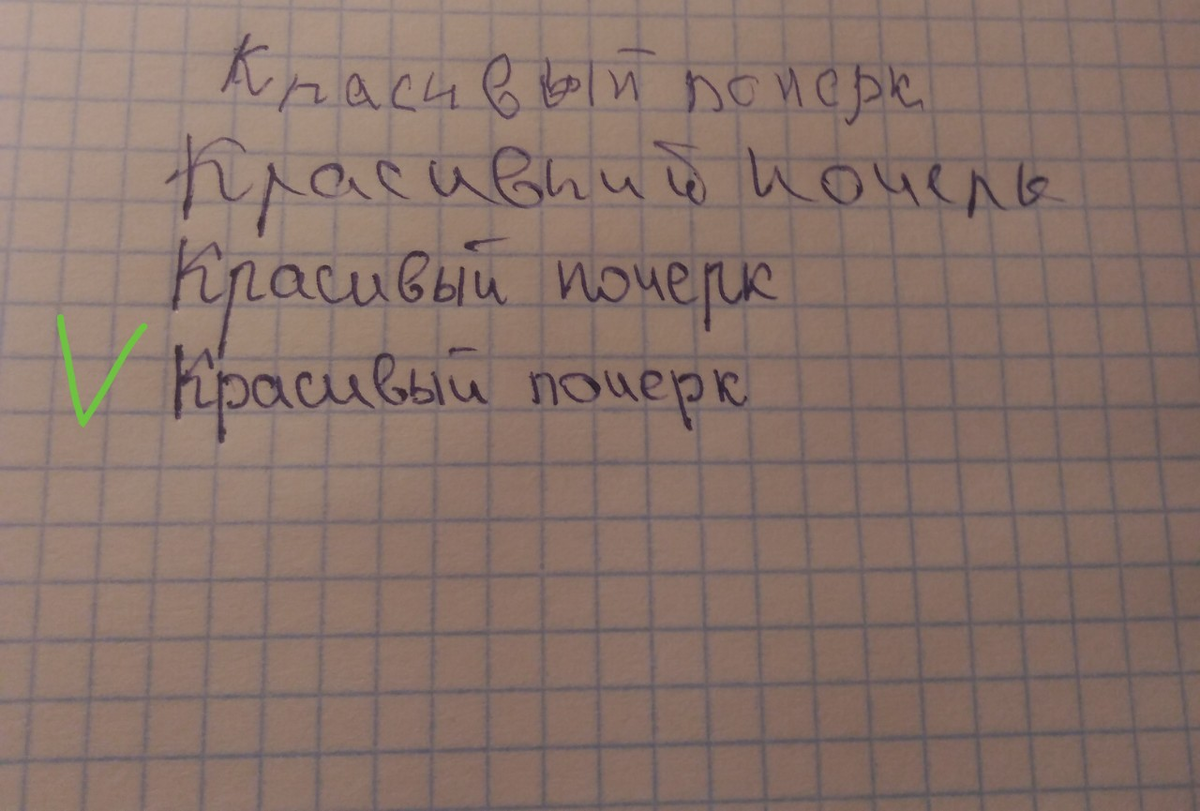 Красивый почерк
Красивый почерк
Красивый почерк
Красивый почерк